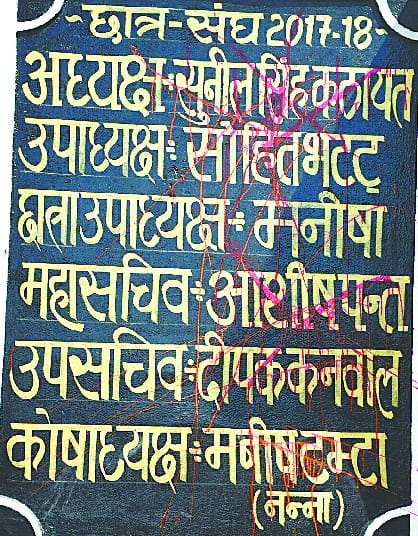 ~छात्र-संघ 2017-18~
अध्यक्ष:सुनील सिंह कठायत
उपाध्यक्ष: साहित भट्ट
छात्राउपाध्यक्ष: मनीषा
महासचिव: आशीष पन्त
उपसचिव:दीपक कनवाल
कोषाध्यक्ष: मनीष टम्टा
(नन्ना)